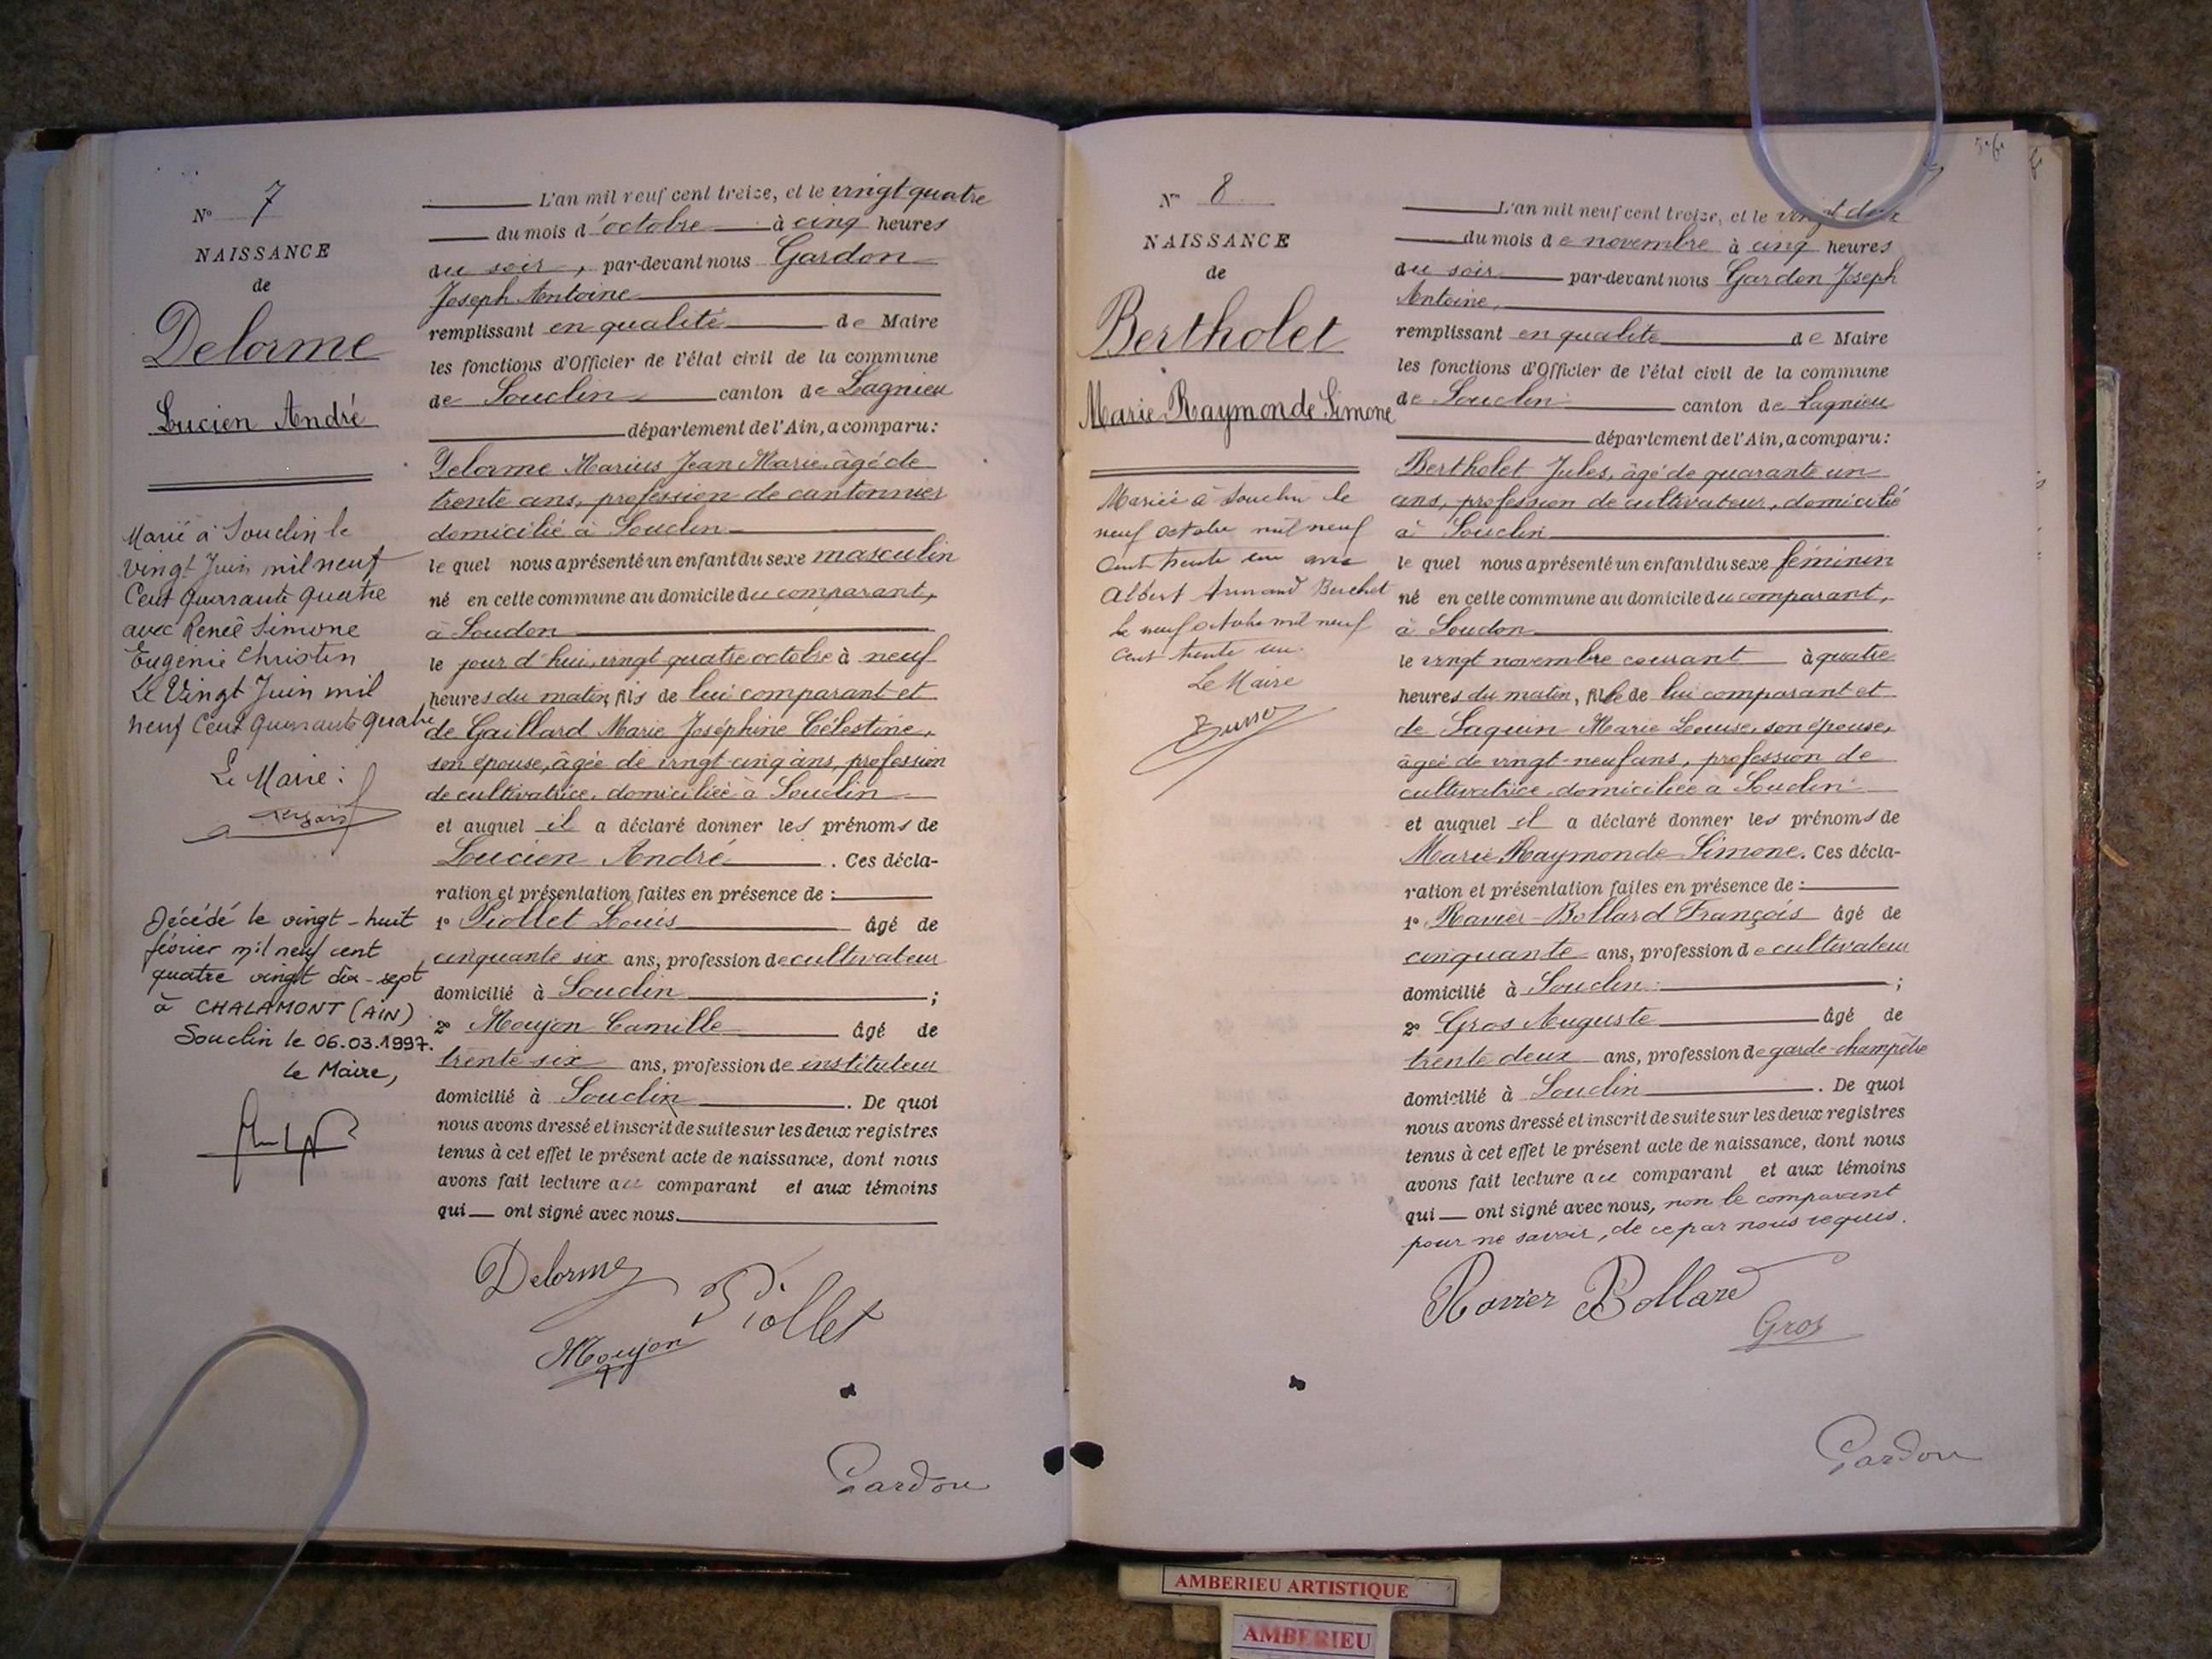 Nº 7
NAISSANCE
de
Delorme
Lucien André
Marié à Souclin le
vingt Juin mil neuf
Cent quarante quatre
avec Renée Simone
Eugénie Christin
Le Vingt Juin mil
neuf Cent quarante quatre
Le Maire :
Décédé le vingt-huit
février mil neuf cent
quatre vingt dix-sept
à CHALAMONT (AIN)
Souclin le 06.03.1997.
le Maire,
L'an mil neuf cent treize, et le vingt quatre
du mois d'octobre à cinq heures
du soir, par-devant nous Gardon
Joseph Antoine
remplissant en qualité de Maire
les fonctions d'Officier de l'état civil de la commune
de Souclin canton de Lagnieu
département de l'Ain, a comparu :
Delorme Marius Jean Marie, âgé de
trente ans, profession de cantonnier
domicilié à Souclin
le quel nous a présenté un enfant du sexe masculin
né en cette commune au domicile du comparant,
à Soudon
le jour d'hui, vingt quatre octobre à neuf
heures du matin, fils de lui comparant et
de Gaillard Marie Joséphine Célestine,
son épouse, âgée de vingt-cinq ans, profession
de cultivatrice, domiciliée à Souclin
et auquel il a déclaré donner les prénoms de
Lucien André. Ces décla-
ration et présentation faites en présence de :
1º Piollet Louis âgé de
cinquante six ans, profession de cultivateur
domicilié à Souclin ;
2º Moujon Camille âgé de
trente six ans, profession de instituteur
domicilié à Souclin. De quoi
nous avons dressé et inscrit de suite sur les deux registres
tenus à cet effet le présent acte de naissance, dont nous
avons fait lecture au comparant et aux témoins
qui ont signé avec nous.
Delorme
Piollet
Moujon
Gardon
Nº 8
NAISSANCE
de
Bertholet
Marie Raymonde Simone
Mariée à Souclin le
neuf octobre mil neuf
cent trente un avec
Albert Armand Berchet
le neuf octobre mil neuf
cent trente un.
Le Maire
L'an mil neuf cent treize, et le vingt deux
du mois de novembre à cinq heures
du soir par-devant nous Gardon Joseph
Antoine,
remplissant en qualité de Maire
les fonctions d'Officier de l'état civil de la commune
de Souclin canton de Lagnieu
département de l'Ain, a comparu :
Bertholet Jules, âgé de quarante un
ans, profession de cultivateur, domicilié
à Souclin
le quel nous a présenté un enfant du sexe féminin
né en cette commune au domicile du comparant,
à Soudon
le vingt novembre courant à quatre
heures du matin, fille de lui comparant et
de Laquin Marie Louise, son épouse,
âgée de vingt-neuf ans, profession de
cultivatrice, domiciliée à Souclin
et auquel il a déclaré donner les prénoms de
Marie Raymonde Simone. Ces décla-
ration et présentation faites en présence de :
1º Ravier-Bollard François âgé de
cinquante ans, profession de cultivateur
domicilié à Souclin ;
2º Gros Auguste âgé de
trente deux ans, profession de garde-champêtre
domicilié à Souclin. De quoi
nous avons dressé et inscrit de suite sur les deux registres
tenus à cet effet le présent acte de naissance, dont nous
avons fait lecture au comparant et aux témoins
qui ont signé avec nous, non le comparant
pour ne savoir, de ce par nous requis.
Ravier Bollard
Gros
Gardon
AMBERIEU ARTISTIQUE
AMBERIEU